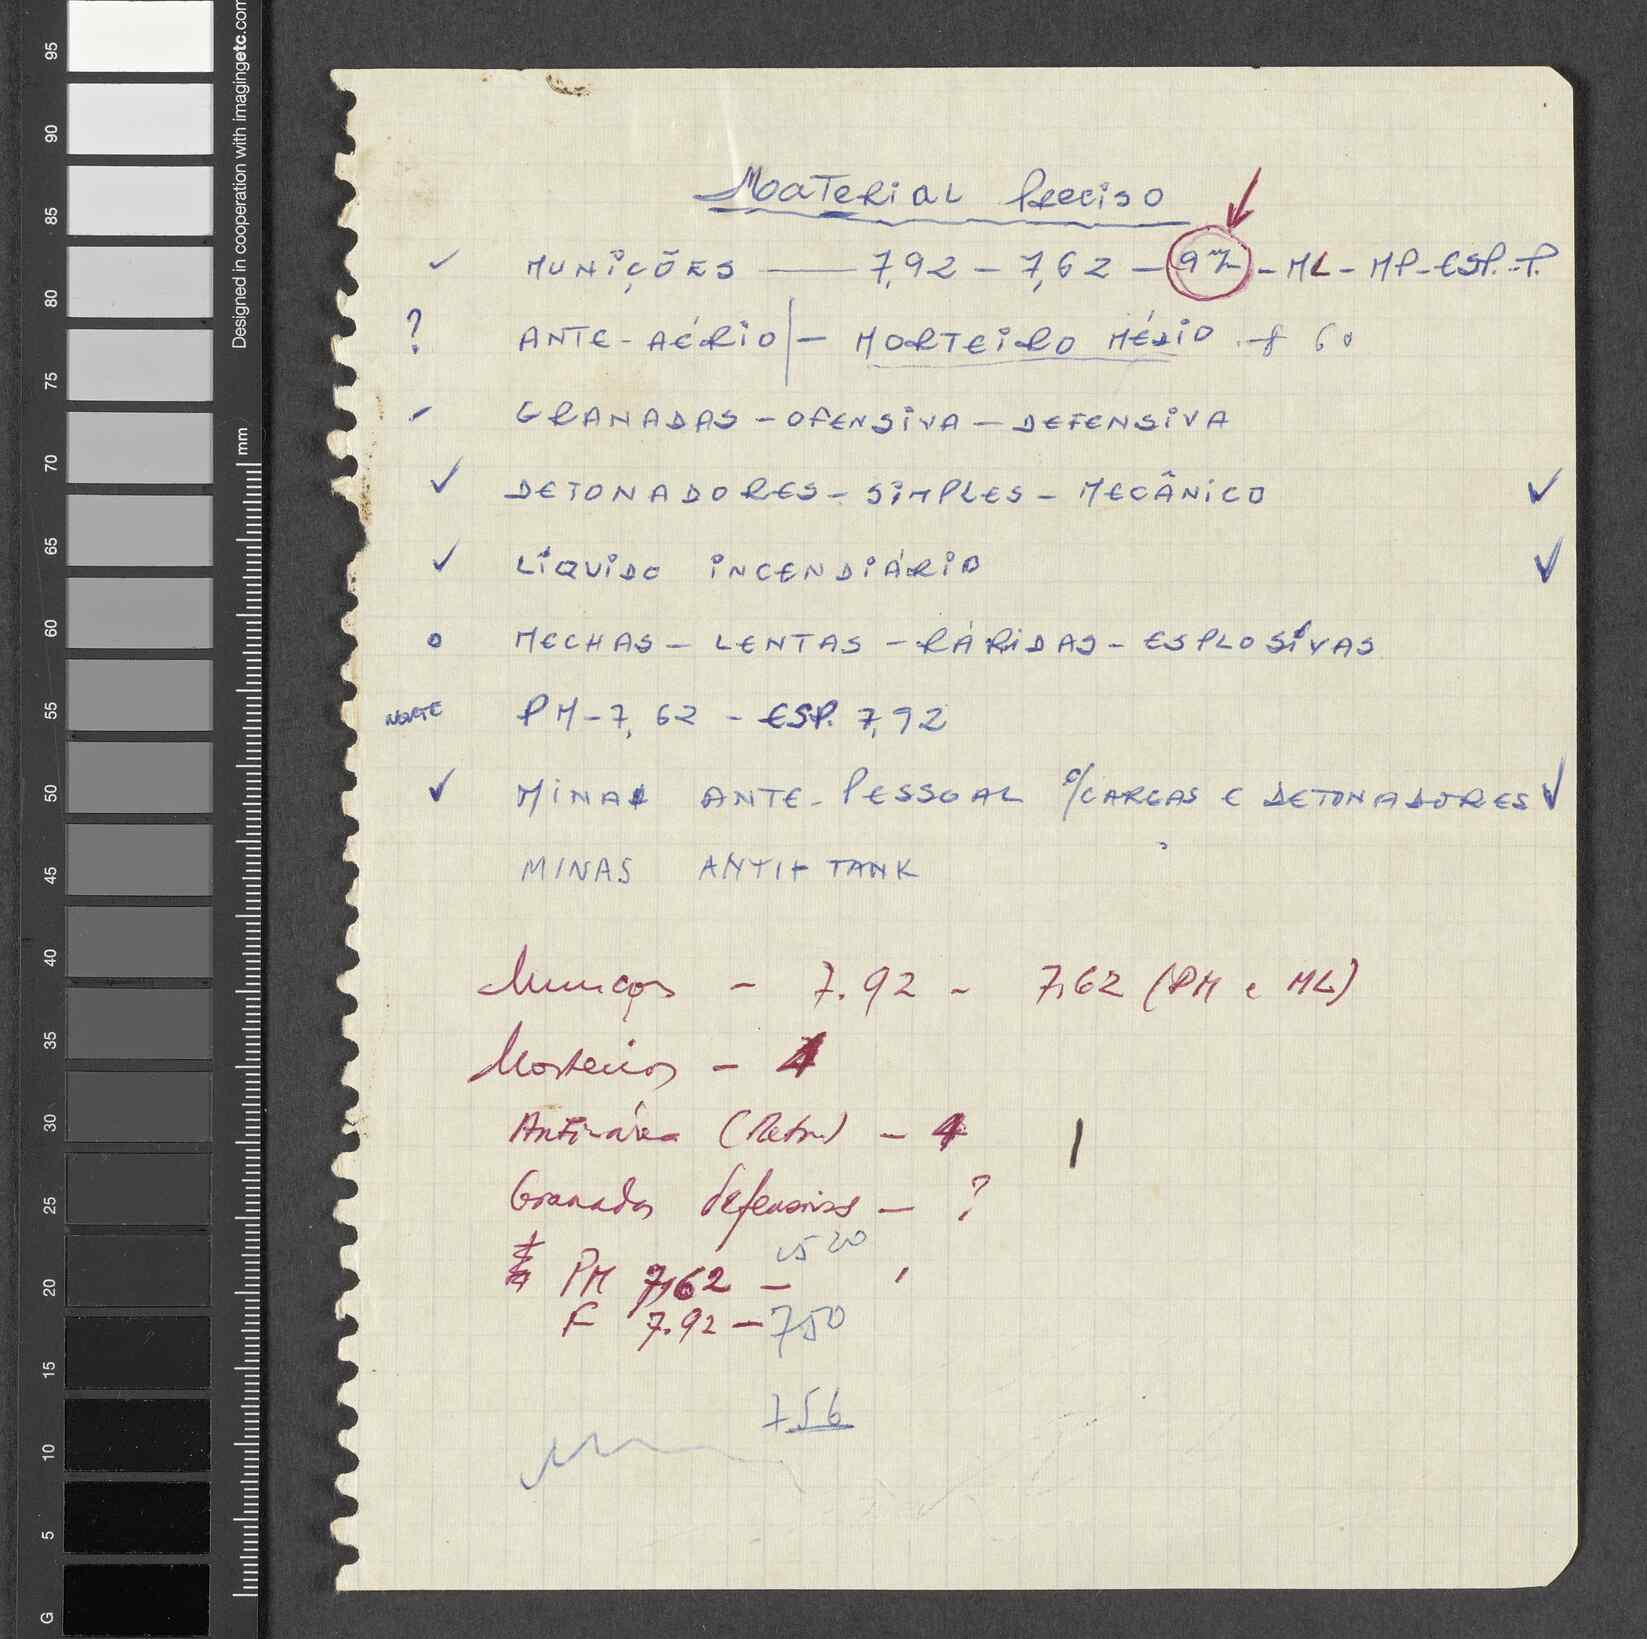 Material Preciso
✓ MUNIÇÕES — 7,92 – 7,62 – 9 – ML – MP – ESP. – P.
? ANTE-AÉRIO | – MORTEIRO MÉDIO 60
GRANADAS – OFENSIVA – DEFENSIVA
✓ DETONADORES – SIMPLES – MECÂNICO ✓
✓ LÍQUIDO INCENDIÁRIO ✓
o MECHAS – LENTAS – RÁPIDAS – ESPLOSIVAS
NORTE PM – 7,62 – ESP. 7,92
✓ MINAS ANTE-PESSOAL c/CARGAS E DETONADORES ✓
MINAS ANTI-TANK
Munições – 7.92 – 7,62 (PM e ML)
Morteiros – 1
Anti-aérea – 1
Granadas defensivas – ?
PM 7,62 – 1520
F 7.92 – 750
756
95
90
85
80
75
70
65
60
55
50
45
40
35
30
25
20
15
10
5
G
mm
Designed in cooperation with imagingetc.com